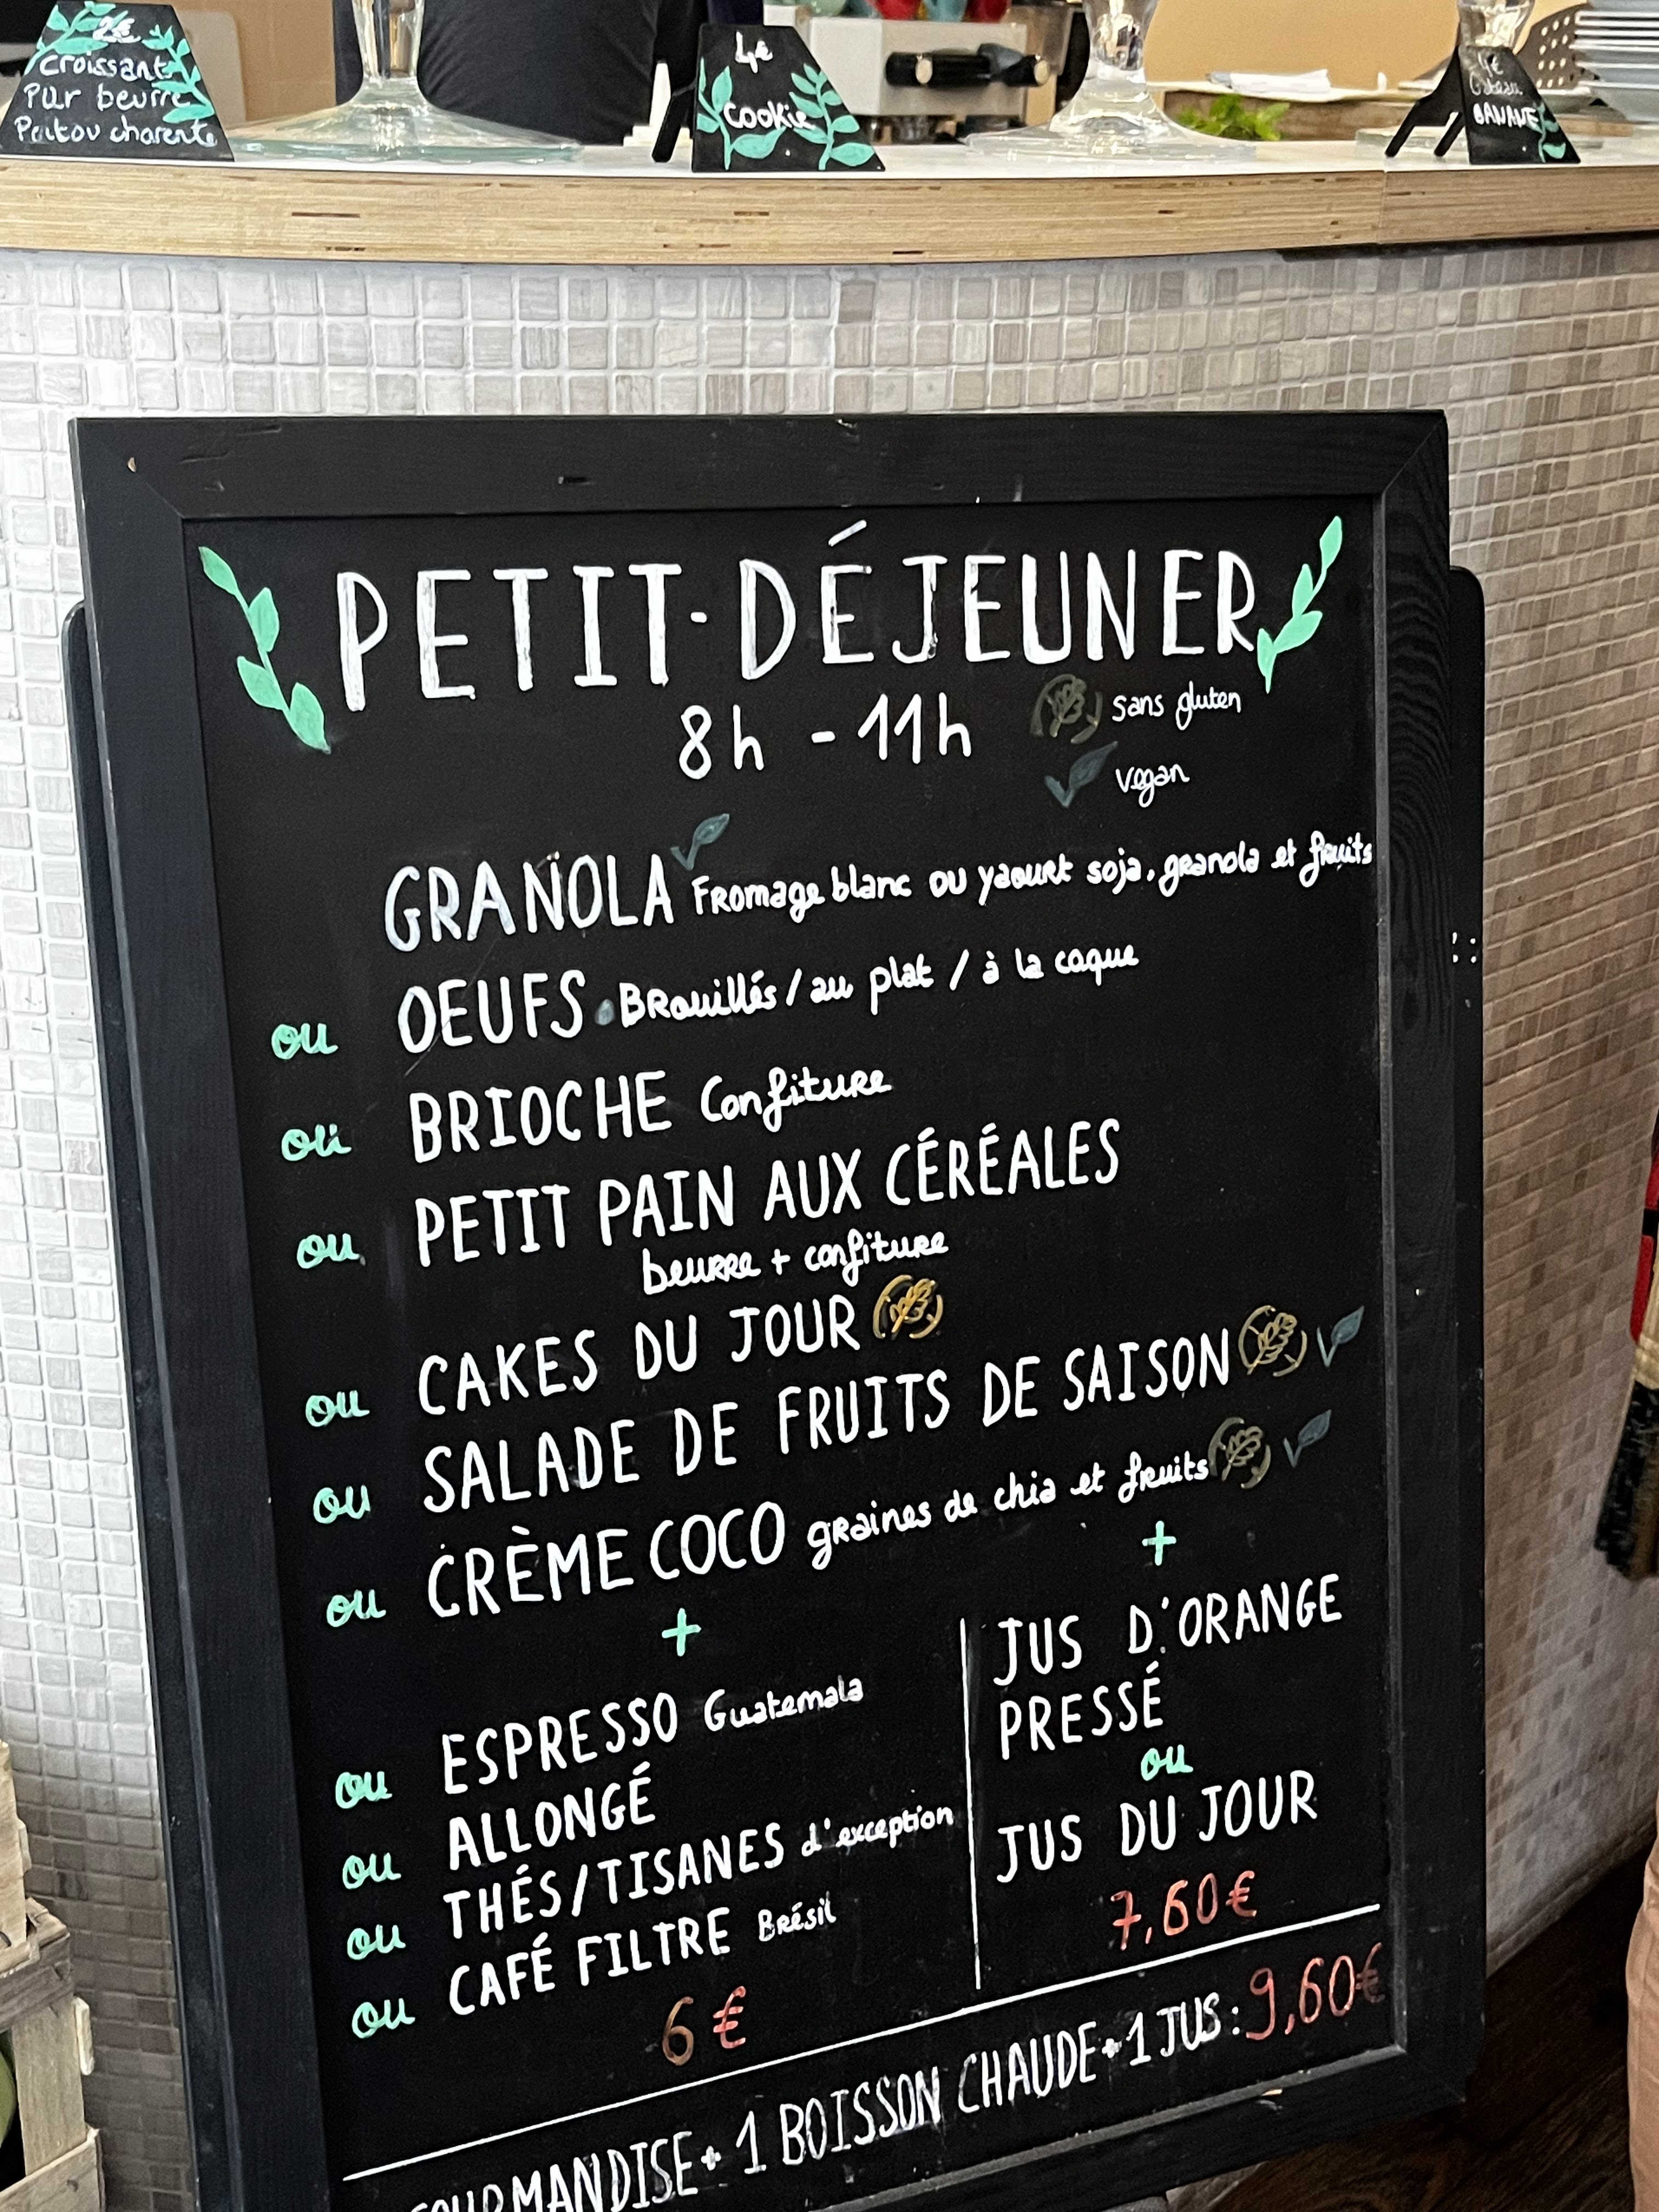 2€
croissant
Pur beurre
Poitou charente
4€
Cookie
Gâteau
BANANE
PETIT-DÉJEUNER
8h - 11h
sans gluten
vegan
GRANOLA Fromage blanc ou yaourt soja, granola et fruits
ou OEUFS Brouillés / au plat / à la coque
ou BRIOCHE Confiture
ou PETIT PAIN AUX CÉRÉALES
beurre + confiture
ou CAKES DU JOUR
ou SALADE DE FRUITS DE SAISON
ou CRÈME COCO graines de chia et fruits
+
ESPRESSO Guatemala
ou ALLONGÉ
ou THÉS/TISANES d'exception
ou CAFÉ FILTRE Brésil
ou
6€
+
JUS D'ORANGE
PRESSÉ
ou
JUS DU JOUR
7,60€
GOURMANDISE + 1 BOISSON CHAUDE + 1 JUS : 9,60€